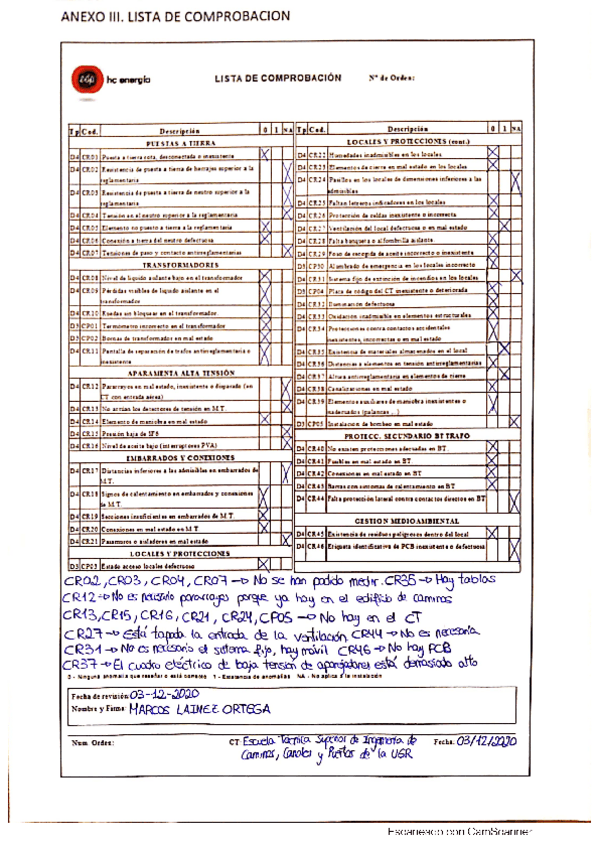 ANEXO III. LISTA DE COMPROBACION
hc energía
LISTA DE COMPROBACIÓN
Nº de Orden:
Tp Cod. Descripción 0 1 NA
PUESTAS A TIERRA
D4 CR01 Puesta a tierra rota, desconectada o inexistente X
D4 CR02 Resistencia de puesta a tierra de herrajes superior a la reglamentaria X
D4 CR03 Resistencia de puesta a tierra de neutro superior a la reglamentaria X
D4 CR04 Tensión en el neutro superior a la reglamentaria X
D4 CR05 Elemento no puesto a tierra a la reglamentaria X
D4 CR06 Conexión a tierra del neutro defectuosa X
D4 CR07 Tensiones de paso y contacto antirreglamentarias X
TRANSFORMADORES
D4 CR08 Nivel de líquido aislante bajo en el transformador X
D4 CR09 Pérdidas visibles de líquido aislante en el transformador X
D4 CR10 Ruedas sin bloquear en el transformador X
D3 CP01 Termómetro incorrecto en el transformador X
D3 CP02 Bornas de transformador en mal estado X
D4 CR11 Pantalla de separación de trafos antirreglamentaria o inexistente X
APARAMENTA ALTA TENSIÓN
D4 CR12 Pararrayos en mal estado, inexistente o disparado (en CT con entrada aérea) X
D4 CR13 No actúan los detectores de tensión en M.T. X
D4 CR14 Elemento de maniobra en mal estado X
D4 CR15 Presión baja de SF6 X
D4 CR16 Nivel de aceite bajo (interruptores PVA) X
EMBARRADOS Y CONEXIONES
D4 CR17 Distancias inferiores a las admisibles en embarrados de M.T. X
D4 CR18 Signos de calentamiento en embarrados y conexiones de M.T. X
D4 CR19 Secciones insuficientes en embarrados de M.T. X
D4 CR20 Conexiones en mal estado en M.T X
D4 CR21 Pasamuros o aisladores en mal estado X
LOCALES Y PROTECCIONES
D3 CP03 Estado acceso locales defectuoso X
Tp Cod. Descripción 0 1 NA
LOCALES Y PROTECCIONES (cont.)
D4 CR22 Humedades inadmisibles en los locales X
D4 CR23 Elementos de cierre en mal estado en los locales X
D4 CR24 Pasillos en los locales de dimensiones inferiores a las admisibles X
D4 CR25 Faltan letreros indicadores en los locales X
D4 CR26 Protección de celdas inexistente o incorrecta X
D4 CR27 Ventilación del local defectuosa o en mal estado X
D4 CR28 Falta banqueta o alfombrilla aislante X
D4 CR29 Foso de recogida de aceite incorrecto o inexistente X
D3 CP30 Alumbrado de emergencia en los locales incorrecto X
D4 CR31 Sistema fijo de extinción de incendios en los locales X
D3 CP04 Placa de código del CT inexistente o deteriorada X
D4 CR32 Iluminación defectuosa X
D4 CR33 Oxidación inadmisible en elementos estructurales X
D4 CR34 Protecciones contra contactos accidentales inexistentes, incorrectas o en mal estado X
D4 CR35 Existencia de materiales almacenados en el local X
D4 CR36 Distancias a elementos en tensión antirreglamentarias X
D4 CR37 Altura antirreglamentaria en elementos de cierre X
D4 CR38 Canalizaciones en mal estado X
D4 CR39 Elementos auxiliares de maniobra inexistentes o inadecuados (palancas ...) X
D3 CP05 Instalación de bombeo en mal estado X
PROTECC. SECUNDARIO BT TRAFO
D4 CR40 No existen protecciones adecuadas en BT. X
D4 CR41 Fusibles en mal estado en BT X
D4 CR42 Conexiones en mal estado en BT X
D4 CR43 Barras con síntomas de calentamiento en BT X
D4 CR44 Falta protección lateral contra contactos directos en BT X
GESTION MEDIOAMBIENTAL
D4 CR45 Existencia de residuos peligrosos dentro del local X
D4 CR46 Etiqueta identificativa de PCB inexistente o defectuosa X
CR02, CR03, CR04, CR07 → No se han podido medir. CR35 → Hay tablas
CR12 → No es necesario pararrayos porque ya hay en el edificio de caminos
CR13, CR15, CR16, CR21, CR24, CP05 → No hay en el CT
CR27 → Está tapada la entrada de la ventilación CR44 → No es necesaria
CR31 → No es necesario el sistema fijo, hay móvil CR46 → No hay PCB
CR37 → El cuadro eléctrico de baja tensión de aparejadores está demasiado alto
0 - Ninguna anomalía que reseñar o está correcto 1 - Existencia de anomalías NA - No aplica a la instalación
Fecha de revisión: 03-12-2020
Nombre y Firma: MARCOS LAINEZ ORTEGA
Num Orden:
CT: Escuela Técnica Superior de Ingeniería de
Caminos, Canales y Puertos de la UGR
Fecha: 03/12/2020
Escaneado con CamScanner